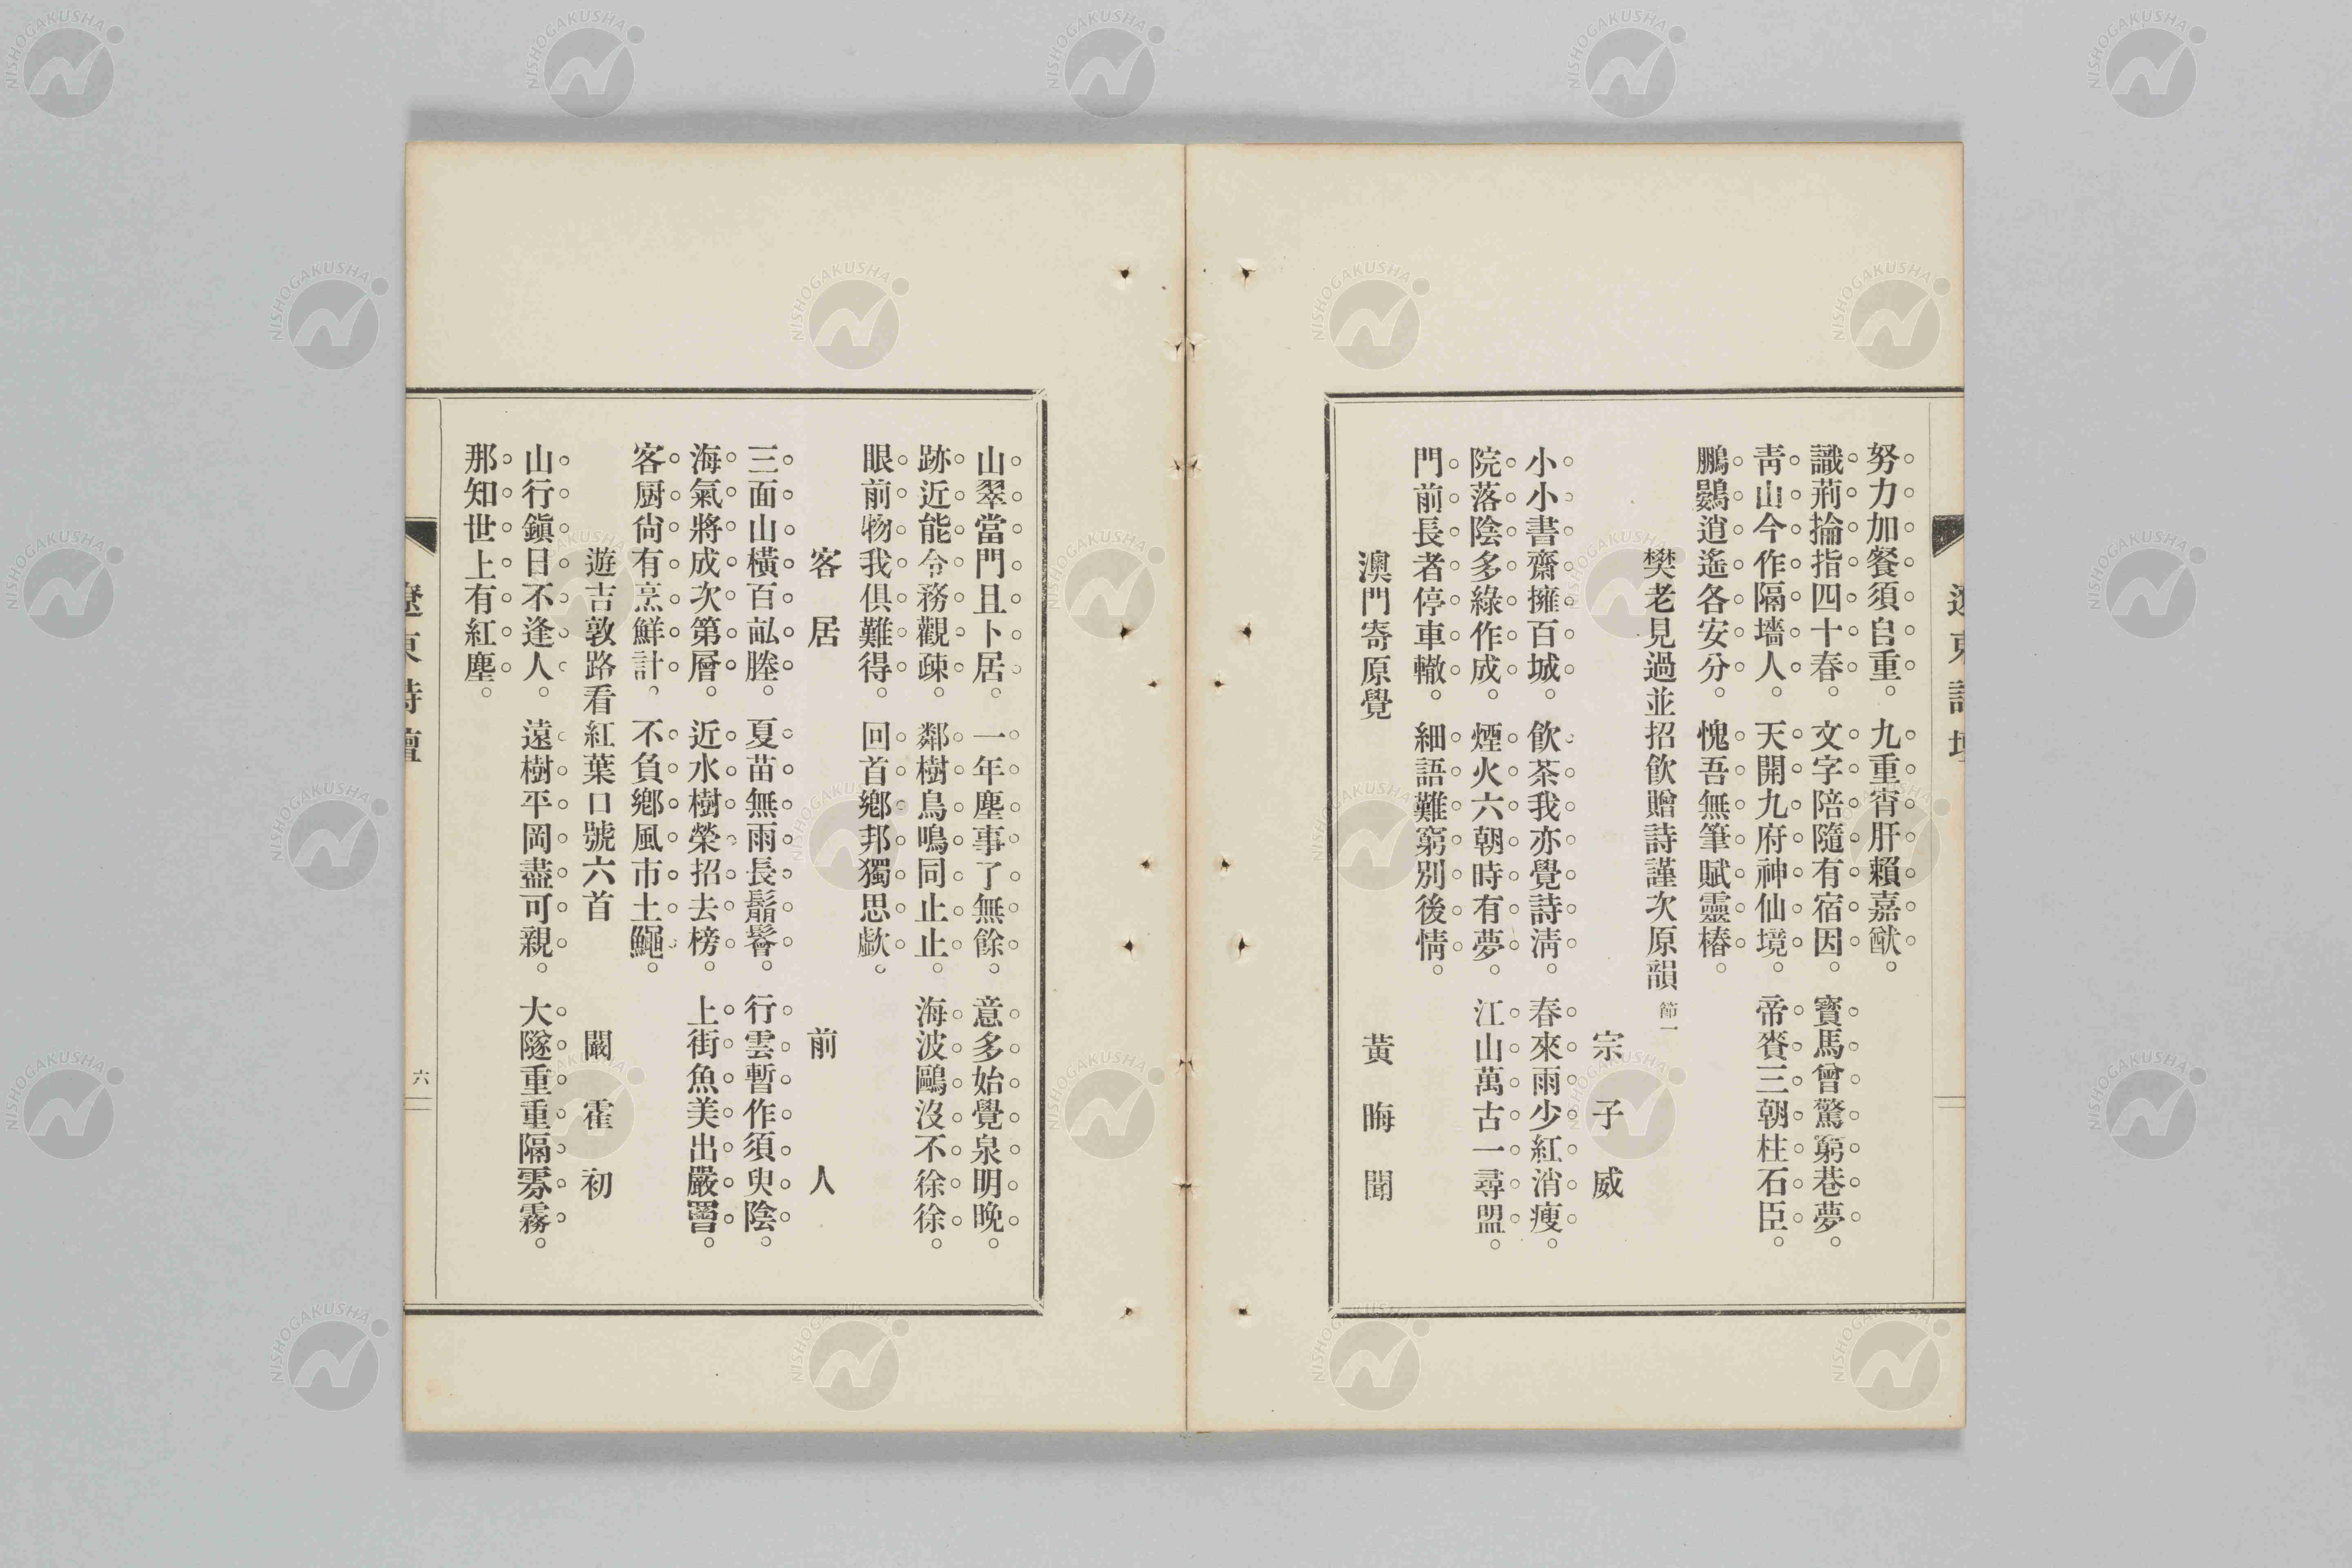 努力加餐須自重。九重宵肝賴嘉猷。
識荊掄指四十春。文字陪隨有宿因。寶馬曾驚窮巷夢。
靑山今作隔墻人。天開九府神仙境。帝賚三朝柱石臣。
鵬鷃逍遙各安分。愧吾無筆賦靈椿。
樊老見過並招飮贈詩謹次原韻 節一
宗子威
小小書齋擁百城。飮茶我亦覺詩淸。春來雨少紅消瘦。
院落陰多綠作成。煙火六朝時有夢。江山萬古一尋盟。
門前長者停車轍。細語難窮別後情。
澳門寄原覺 黃晦聞
山翠當門且卜居。一年塵事了無餘。意多始覺泉明晚。
跡近能令務觀疎。鄰樹鳥鳴同止止。海波鷗沒不徐徐。
眼前物我俱難得。回首鄉邦獨思歔。
客居 前人
三面山橫百畝塍。夏苗無雨長鬅鬙。行雲暫作須臾陰。
海氣將成次第層。近水樹榮招去榜。上街魚美出嚴罾。
客厨尙有烹鮮計。不負鄉風市土鱦。
遊吉敦路看紅葉口號六首 闞霍初
山行鎭日不逢人。遠樹平岡盡可親。大隧重重隔雰霧。
那知世上有紅塵。
遼東詩壇
六
NISHOGAKUSHA